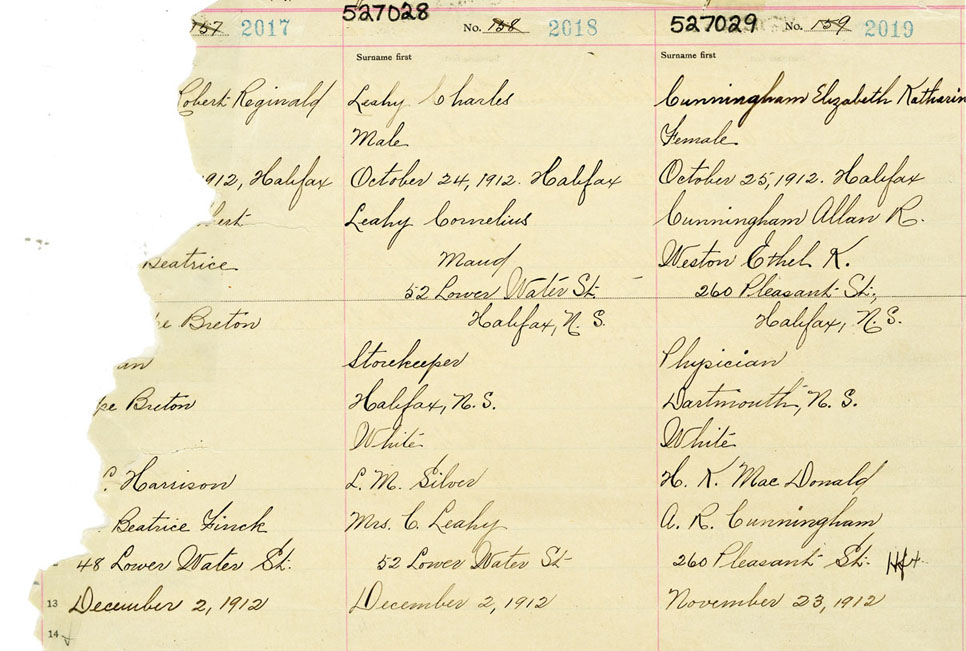 137 2017
527028 No. 138 2018
527029 No. 159 2019
Surname first
Surname first
Robert Reginald
Leahy Charles
Cunningham Elizabeth Katharin
Male
Female
1912, Halifax
October 24, 1912. Halifax
October 25, 1912. Halifax
Leahy Cornelius
Cunningham Allan R.
Beatrice
Maud
Weston Ethel K.
52 Lower Water St.
260 Pleasant St.,
Breton
Halifax, N. S.
Halifax, N.S.
Storekeeper
Physician
Breton
Halifax, N. S.
Dartmouth, N. S.
White
White
Harrison
L. M. Silver
H. K. Mac Donald
Beatrice Finck
Mrs. C. Leahy
A. R. Cunningham
48 Lower Water St.
52 Lower Water St
260 Pleasant St. Hfx
13 December 2, 1912
December 2, 1912
November 23, 1912
14